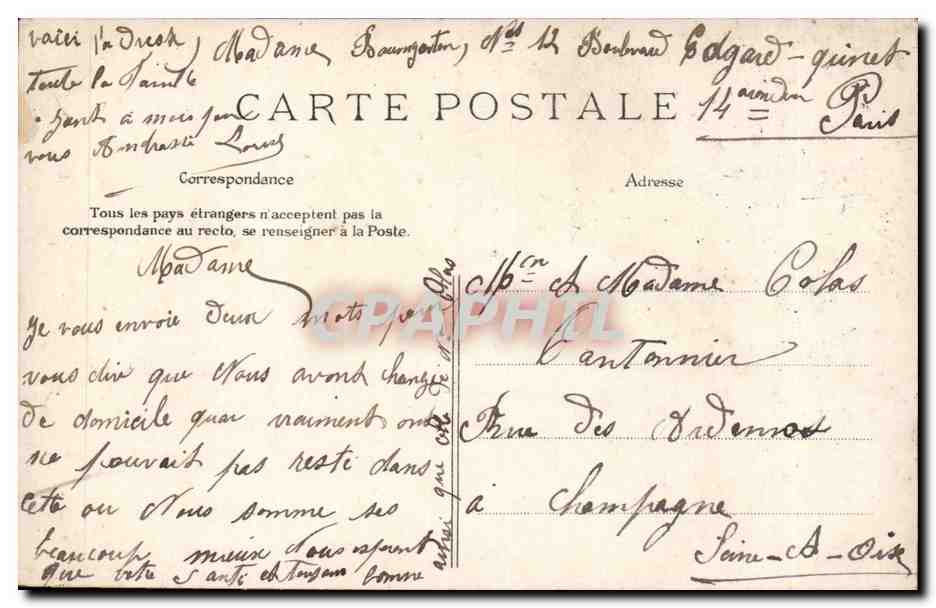 voici l'adress, Madame Baumgarten, Nos 12 Boulevard Edgard-quinet
toute la Sainte
14 Paris
CARTE POSTALE
vous
Correspondance
Adresse
Tous les pays étrangers n'acceptent pas la
correspondance au recto, se renseigner à la Poste.
Madame
Je vous envoie deux mots pour
vous dire que Nous avont changé
de domicile quar vraiment ont
ne pouvait pas resté dans
cette ou Nous somme ses
beaucoup mieux Nous esperont
que votre Santé et toujour bonne
ainsi que
Colas
Mr et Madame Colas
Cantonnier
Rue des Ardennes
à Champagne
Seine-et-Oise
CPAPHIL